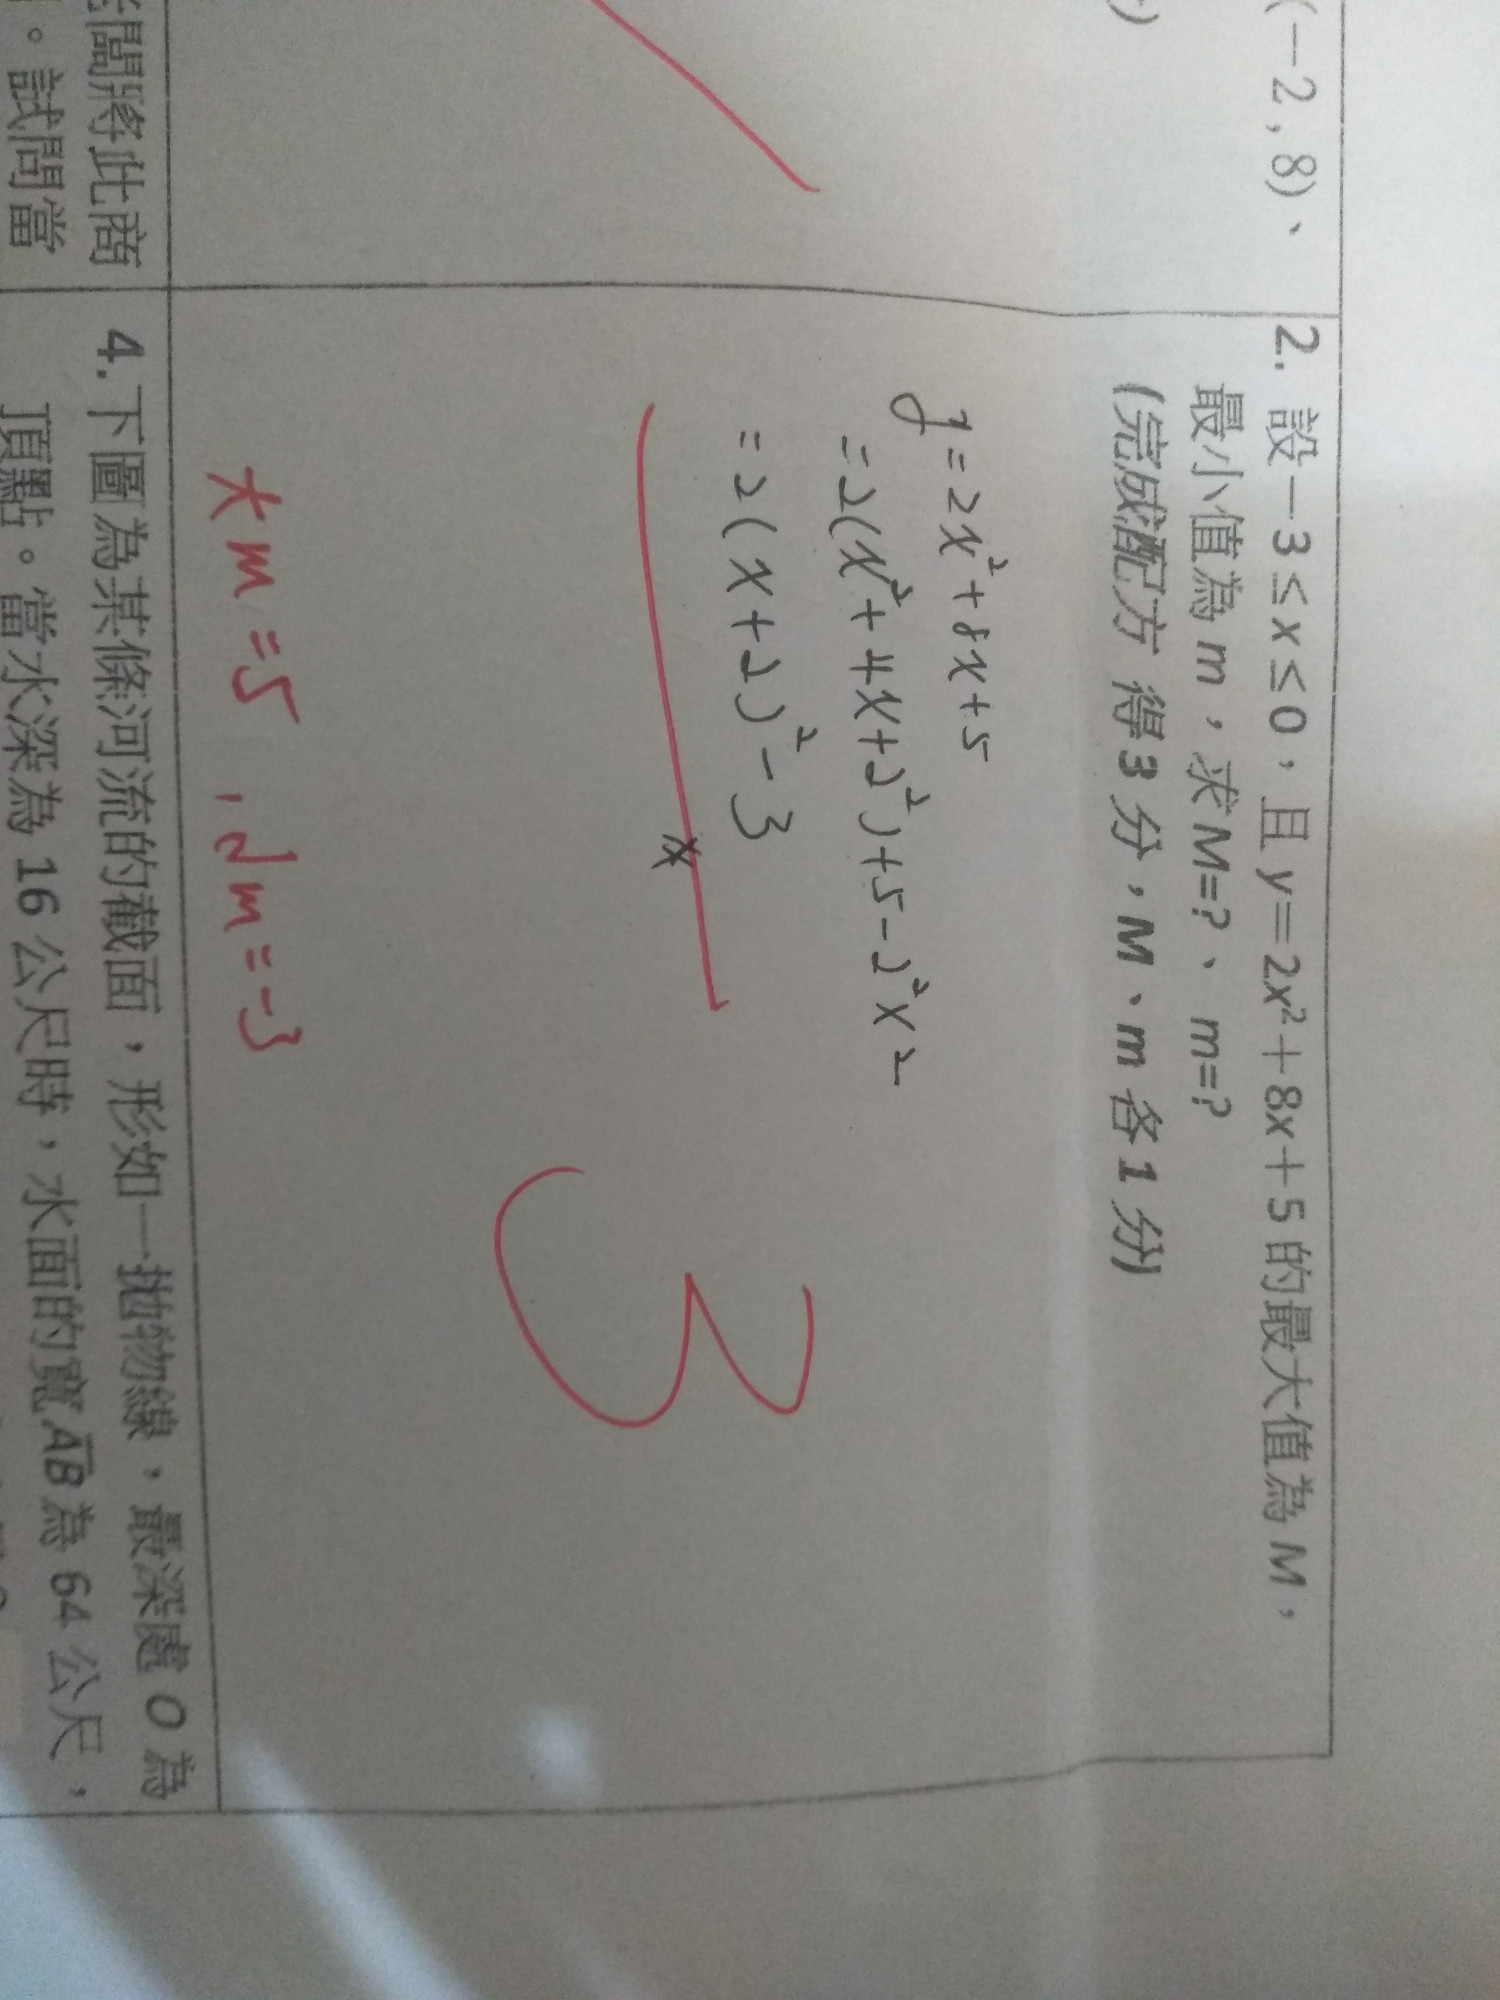 (－2 , 8)、
2. 設－3≤x≤0，且y＝2x²＋8x＋5的最大值為M，
最小值為m，求M=?、m=?
(完成配方 得3分，M、m各1分)
y=2x²+8x+5
=2(x²+4x+2²)+5-2²x2
=2(x+2)²-3
3
大m=5，小m=-3
闆將此商
。試問當
4.下圖為某條河流的截面，形如一拋物線，最深處O為
頂點。當水深為16公尺時，水面的寬AB為64公尺，